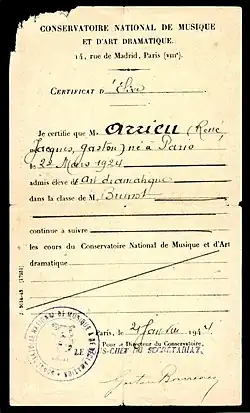 CONSERVATOIRE NATIONAL DE MUSIQUE
ET D'ART DRAMATIQUE.
14, rue de Madrid, Paris (VIIIe).
CERTIFICAT D'Élève
Je certifie que M. Arrieu (René
Jacques, Gaston) né à Paris
le 22 Mars 1924
admis élève de art dramatique
dans la classe de M. Brunot
continue à suivre
les cours du Conservatoire National de Musique et d'Art
dramatique
Paris, le 1944
Pour le Directeur du Conservatoire,
LE SOUS-CHEF DU SECRÉTARIAT,